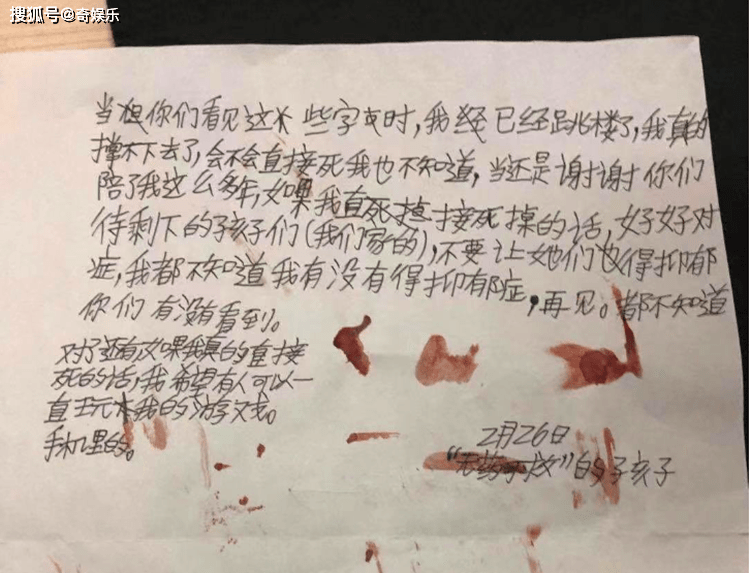 搜狐号@奇娱乐
当想你们看见这些字时,我经已经跳楼了,我真的
撑不下去了,会不会直接死我也不知道,当还是谢谢你们
陪了我这么多年,如果我直死接死掉的话,好好对
待剩下的孩子们(我们家的),不要让她们也得抑郁
症,我都不知道我有没有得抑郁症,再见。都不知道
你们有没有看到。
对了还有如果我真的直接
死的话,我希望有人可以一
直玩我的游戏。
手机里的。
2月26日
“无药可救”的子孩子